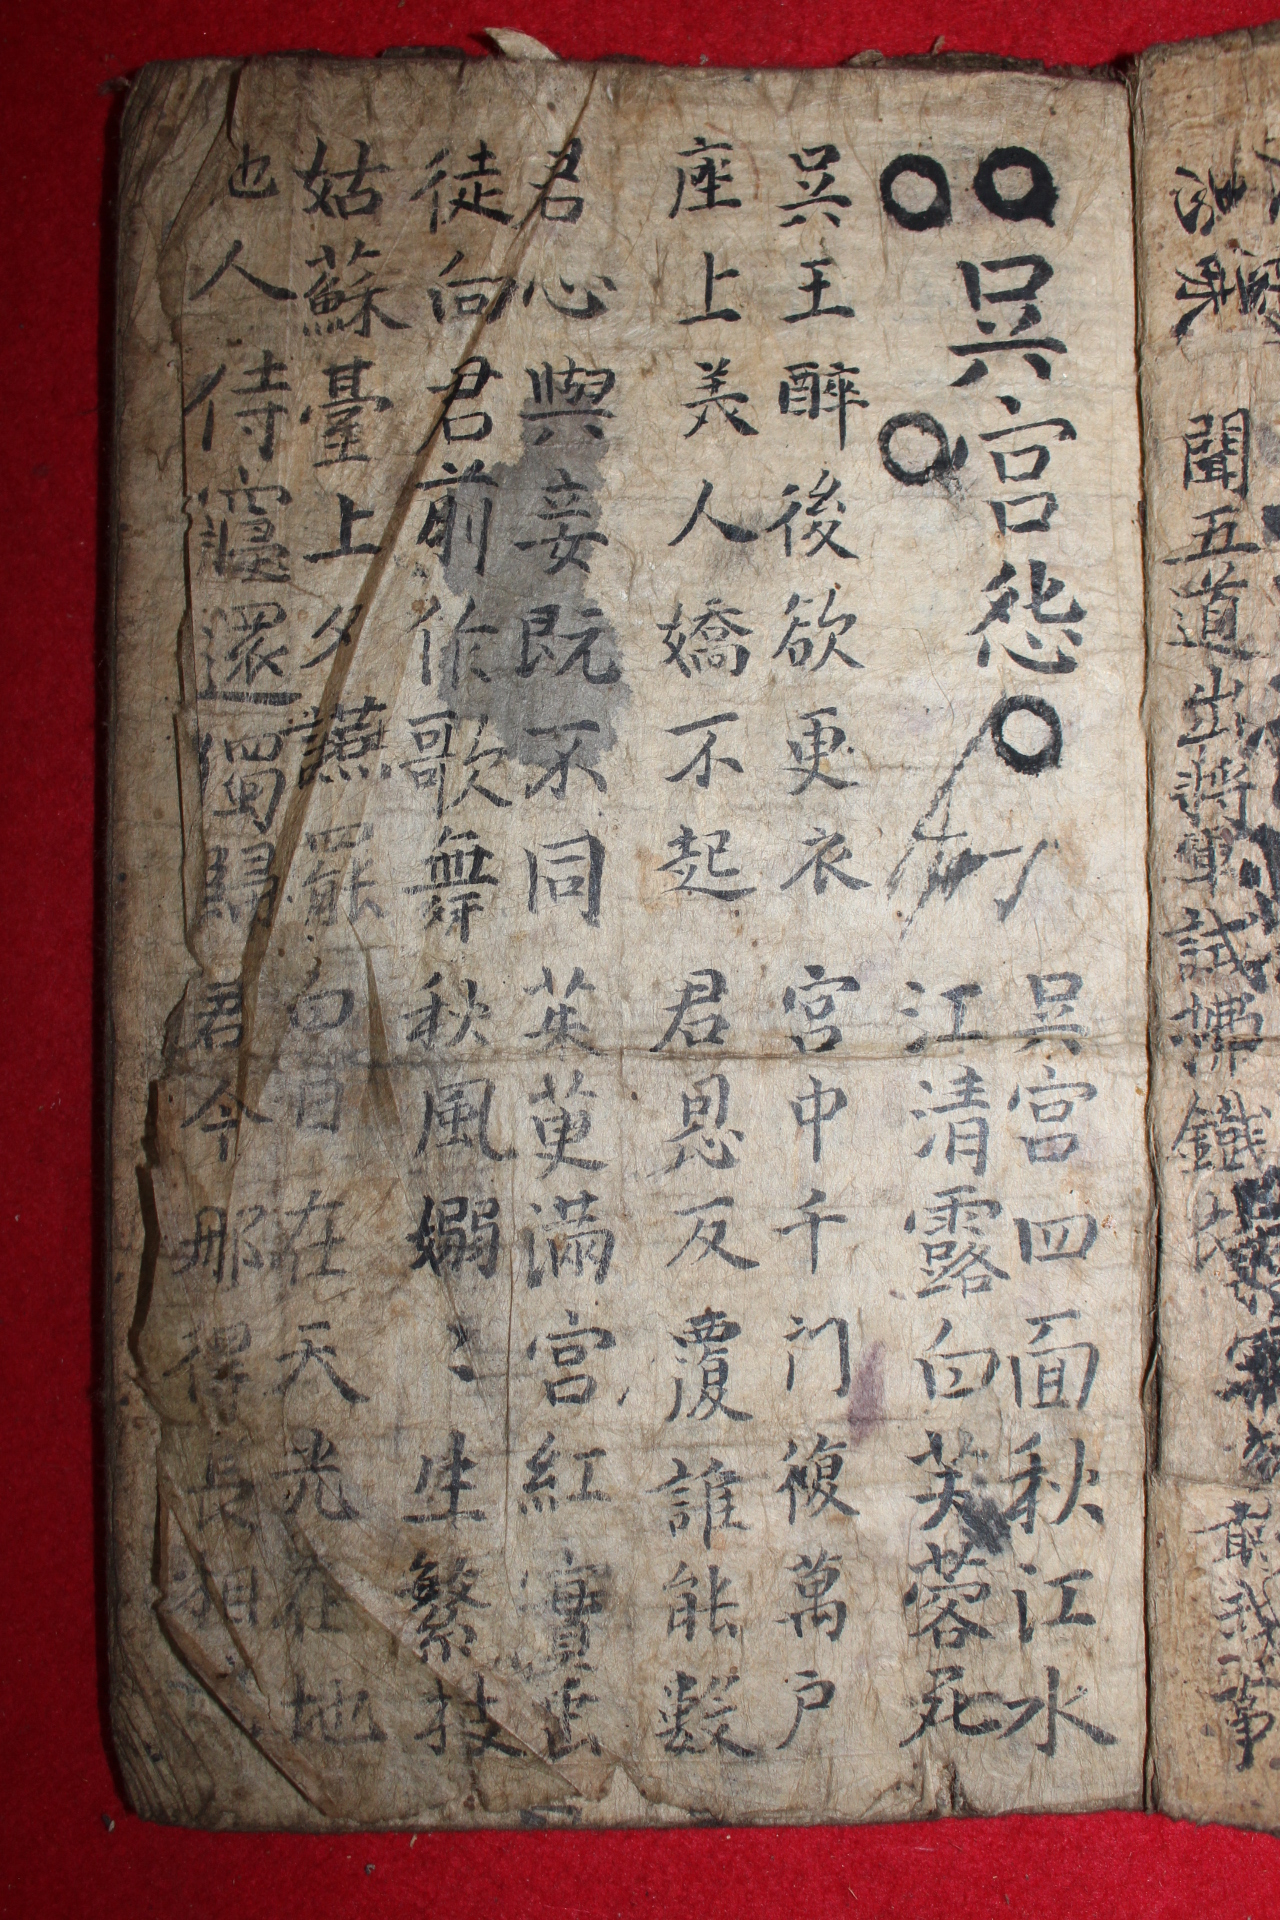 聞五道出將軍試拂鐵
吳宮怨 吳宮四面秋江水
江清露白芙蓉死
吳王醉後欲更衣 宮中千門複萬戶
座上美人嬌不起 君恩反覆誰能數
君心與妾既不同 茱萸滿宮紅實垂
徒向君前作歌舞 秋風嫋〻生繁技
姑蘇臺上夕讌罷 白日在天光在地
也人侍寢還獨歸 君今那得長相